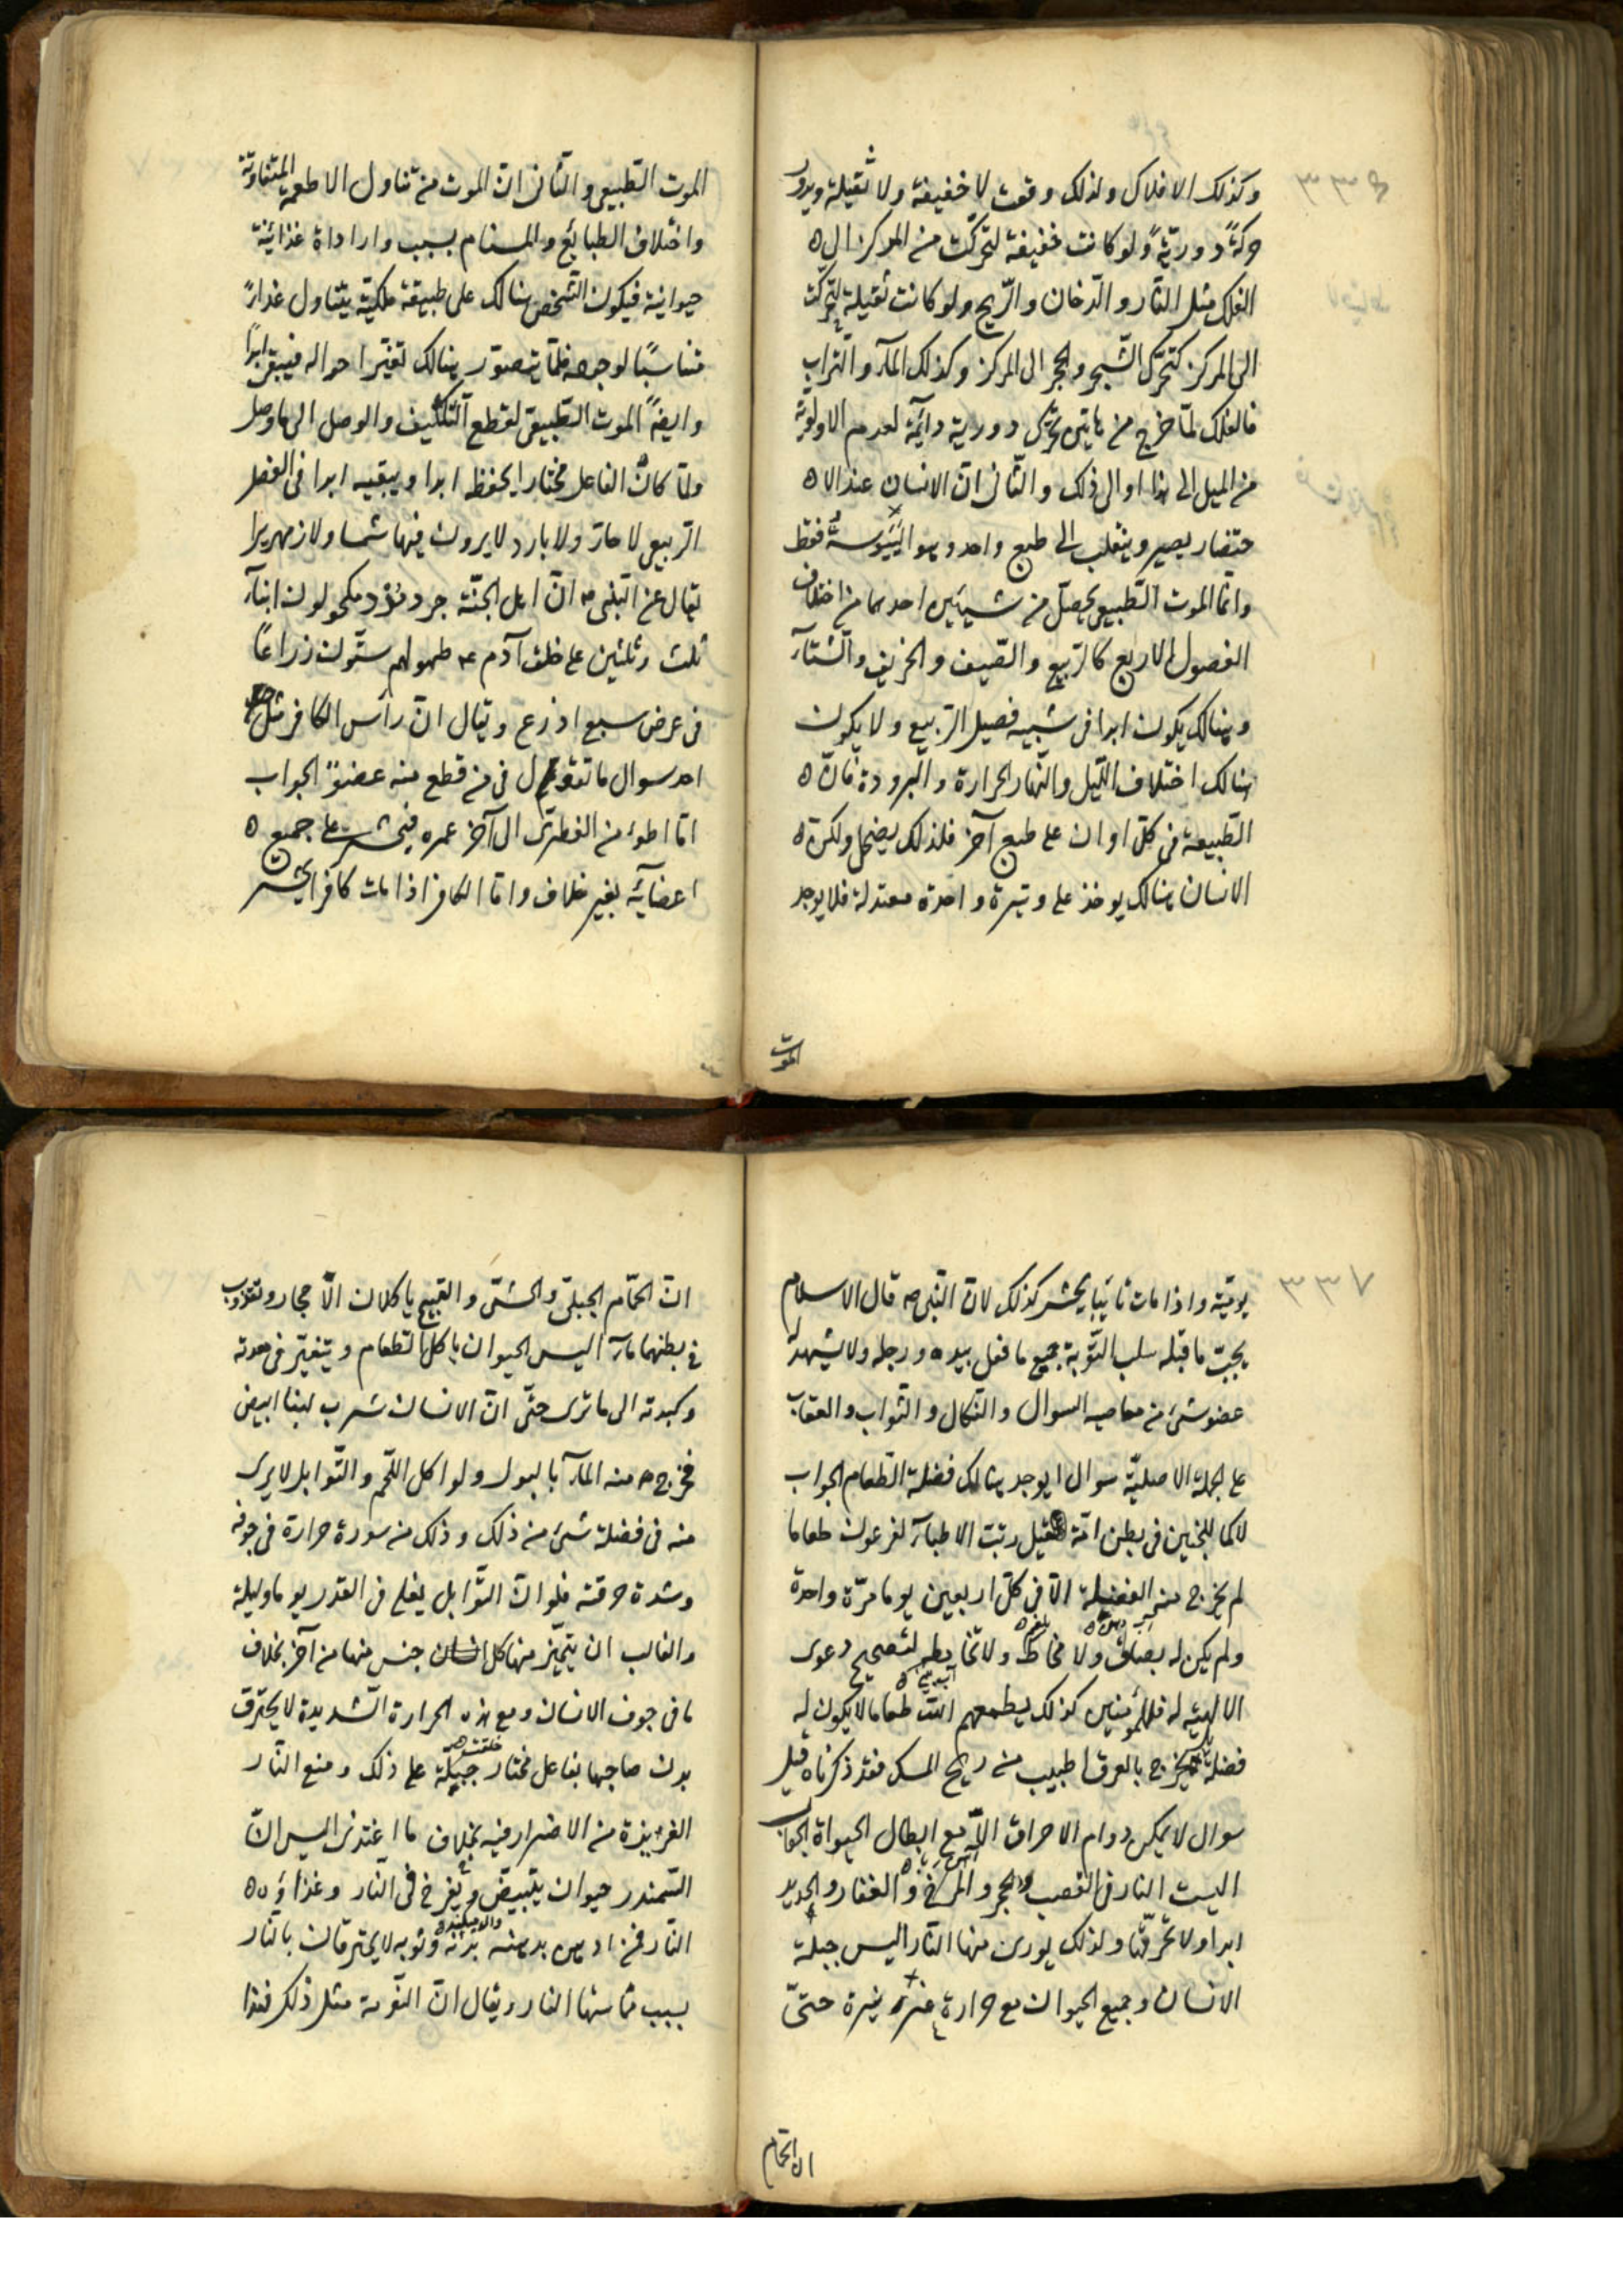 ٣٣٦
وكذلك الافلاك ولذلك وقعت لا خفيفة ولا ثقيلة ويدور
حركةً دوريّةً ولو كانت خفيفة لتحركت من المركز الى
الفلك مثل النّار والدّخان والرّيح ولو كانت ثقيلة لتحركت
الى المركز كتحرّك الشّجر والحجر الى المركز وكذلك المآء والتّراب
فالفلك لمّا خرج من هاتين تحرّك دورية دائمة لعدم الاولويّة
من الميل الى هذا او الى ذلك والثّانى انّ الانسان عند الا
حتضار يصير وينقلب الى طبع واحد وهو اليَبُوسة فقط
وانّما الموت الطّبيعى يحصل من شيئين احدهما من اختلاف
الفصول الاربع كالرّبيع والصّيف والخريف والشّتآء
وهنالك يكون ابدا فى شبيه فصيل الرّبيع ولا يكون
هنالك اختلاف اللّيل والنّهار الحرارة والبرودة فانّ
الطّبيعة فى كلّ اوان على طبع آخر فلذلك يضمحل ولكن
الانسان هنالك يوخذ على وتيرة واحدة معتدلة فلا يوجد
الموت
الموت الطّبيعى والثّانى انّ الموت من تناول الاطعمة المتفاوتة
واختلاف الطبائع والمسام بسبب واراداة غذائية
حيوانية فيكون الشّخص هنالك على طبيعة ملكيّة يتناول غذاءً
متناسبًا لوجهه فلمّا يتصوّر هنالك تغيّر احواله فيبقى ابدًا
وايضًا الموت الطّبيعى لقطع التّكليف والوصل الى ما وصل
ولمّا كان الفاعل مختارا يحفظه ابدا ويبقيه ابدا فى الفصل
الرّبيعى لا حارّ ولا بارد لا يرون فيها شمسا ولا زمهريرا
يقال عن النّبى ص انّ اهل الجنّة جرد مُرْد مكحولون ابنآء
ثلث وثلثين على خلق آدم ع طولهم ستّون ذراعًا
فى عرض سبع اذرع ويقال انّ رأس الكافر مثل جبل
احد سوال ما تقول فى من قطع منه عضوٌ الجواب
امّا المؤمن الفطرى الى آخر عمره فيحشر على جميع
اعضائه بغير خلاف وامّا الكافر اذا مات كافرا يحشر
٣٣٧
يوميّة واذا مات تائبا يحشر كذلك لانّ النّبى ص قال الاسلام
يجبّ ما قبله سلب التّوبة جميع ما فعل بيده ورجله ولا يشهد له
عضو شئ من معاصيه السوال والنّكال والثّواب والعقاب
على الجملة الاصليّة سوال ايوجد هنالك فضلة الطّعام الجواب
لا كما للجنين فى بطن امّه قيل رتبت الاطبآء لفرعون طعاما
لم يخرج منه الفضلة الّا فى كلّ اربعين يوما مرّة واحدة
ولم يكن له بصاق ولا مخاط ولا تخابط لتصحيح دعوى
الالهيّة له فللمؤمنين كذلك يطعمهم الله طعاما لا يكون له
فضلة يخرج بالعرق اطيب من ريح المسك فقد ذكرناه قيل
سوال لا يمكن دوام الاحراق الّا مع ابطال الحيواة الجواب
اليست النّار فى القصب والحجر والمرخ والعفار والحديد
ابدا ولا تحرقها ولذلك يورى منها النّار اليس جبلة
الانسان وجميع الحيوان مع حرارة غريزة حتىّ
ان الحمام
انّ الحمّام الجبلىّ والحشىّ والقبج ياكلان الاحجار وتذوب
فى بطنهما مآء اليس الحيوان ياكل الطعام ويتغيّر فى معدته
وكبدته الى ما ترى حتّى انّ الانسان شرب لبنا ابيض
فخرج منه المآء بالبول ولو اكل اللّحم والتّوابل لا يرى
منه فى فضلة شئ من ذلك وذلك من سورة حرارة فى جوفه
وشدة حرقته فلو انّ التّوابل يغلى فى القدر يوما وليلة
والغالب ان يتميّز منها كل جنس منها من آخر بخلاف
ما فى جوف الانسان ومع هذه الحرارة الشّديدة لا يحترق
بدن صاحبها بفاعل مختار جبلة على ذلك ومنع النّار
الغريزة من الاضرار فيه بخلاف ما اغتذى اليس انّ
السّمندر حيوان يتبيّض ويفرخ فى النّار وغذاؤه
النّار فمن ادهن بدهنه بدنه وثوبه لا يحترقان بالنّار
بسبب مماستها النار ويقال انّ النّورة مثل ذلك فهذا